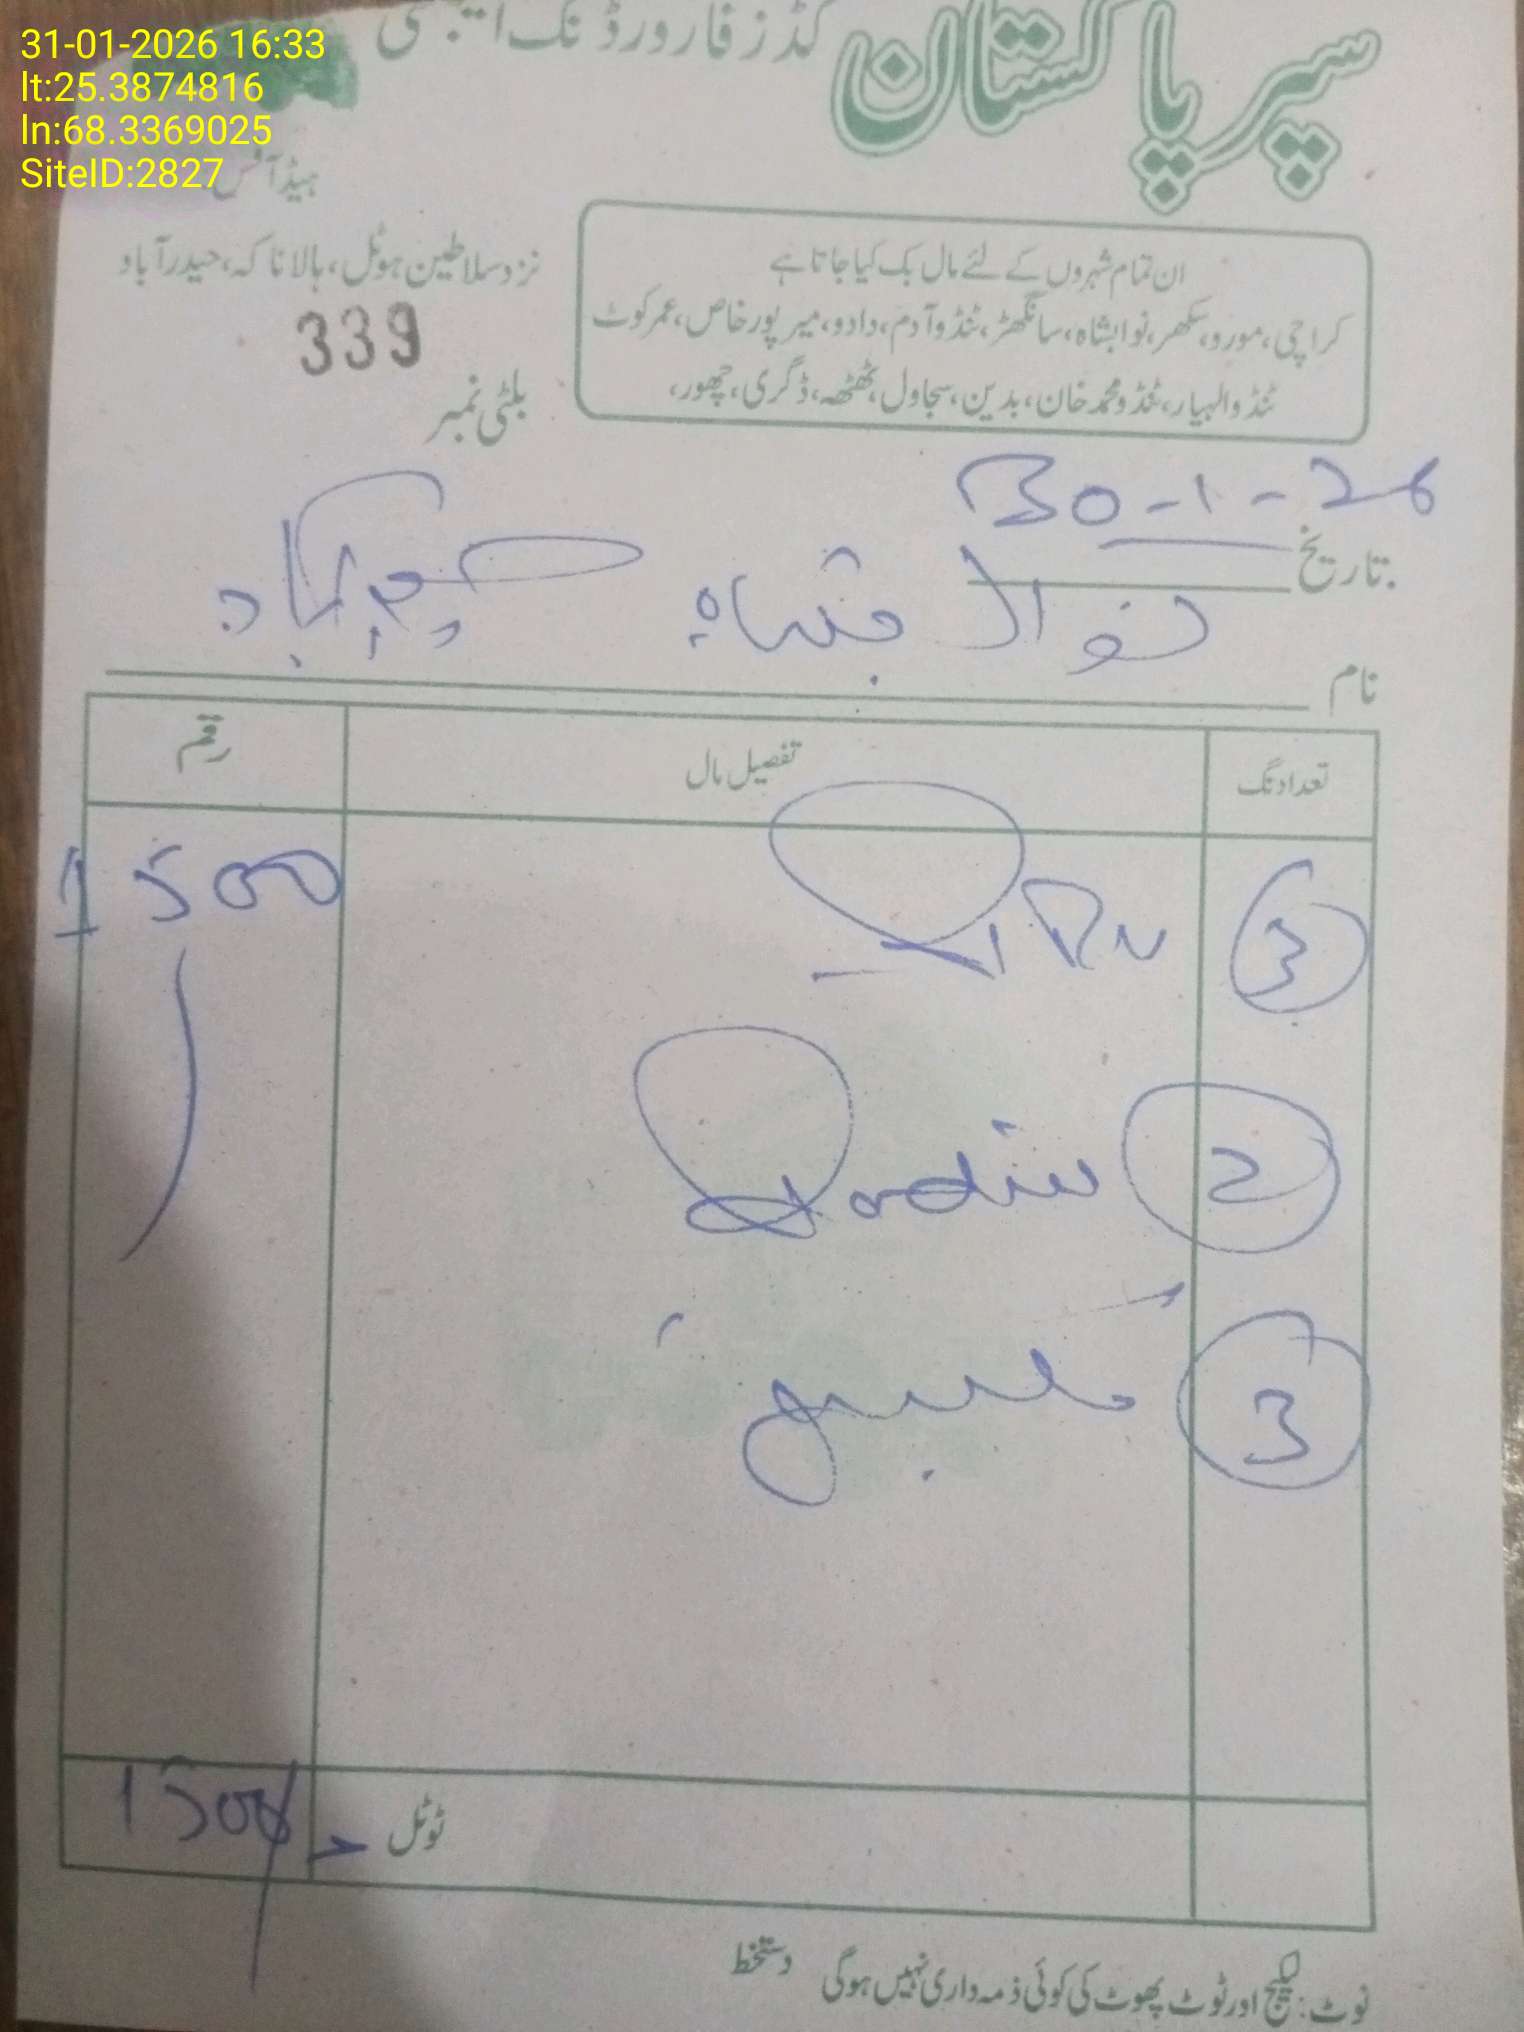 31-01-2026 16:33
lt:25.3874816
ln:68.3369025
SiteID:2827
سپر پاکستان گڈز فارورڈنگ ایجنسی
ہیڈ آفس
نزد سلاطین ہوٹل، ہالا ناکہ، حیدرآباد
339
بلٹی نمبر
ان تمام شہروں کے لئے مال بک کیا جاتا ہے
کراچی، مورو، سکھر، نوابشاہ، سانگھڑ، ٹنڈوآدم، دادو، میرپورخاص، عمرکوٹ
ٹنڈوالہیار، ٹنڈومحمدخان، بدین، سجاول، ٹھٹھہ، ڈگری، چھور،
تاریخ 30-1-26
نام نواب شاہ حیدرآباد
تعداد نگ تفصیل مال رقم
3 1500
2
3
ٹوٹل 1500/
نوٹ: لیکیج اور ٹوٹ پھوٹ کی کوئی ذمہ داری نہیں ہوگی دستخط